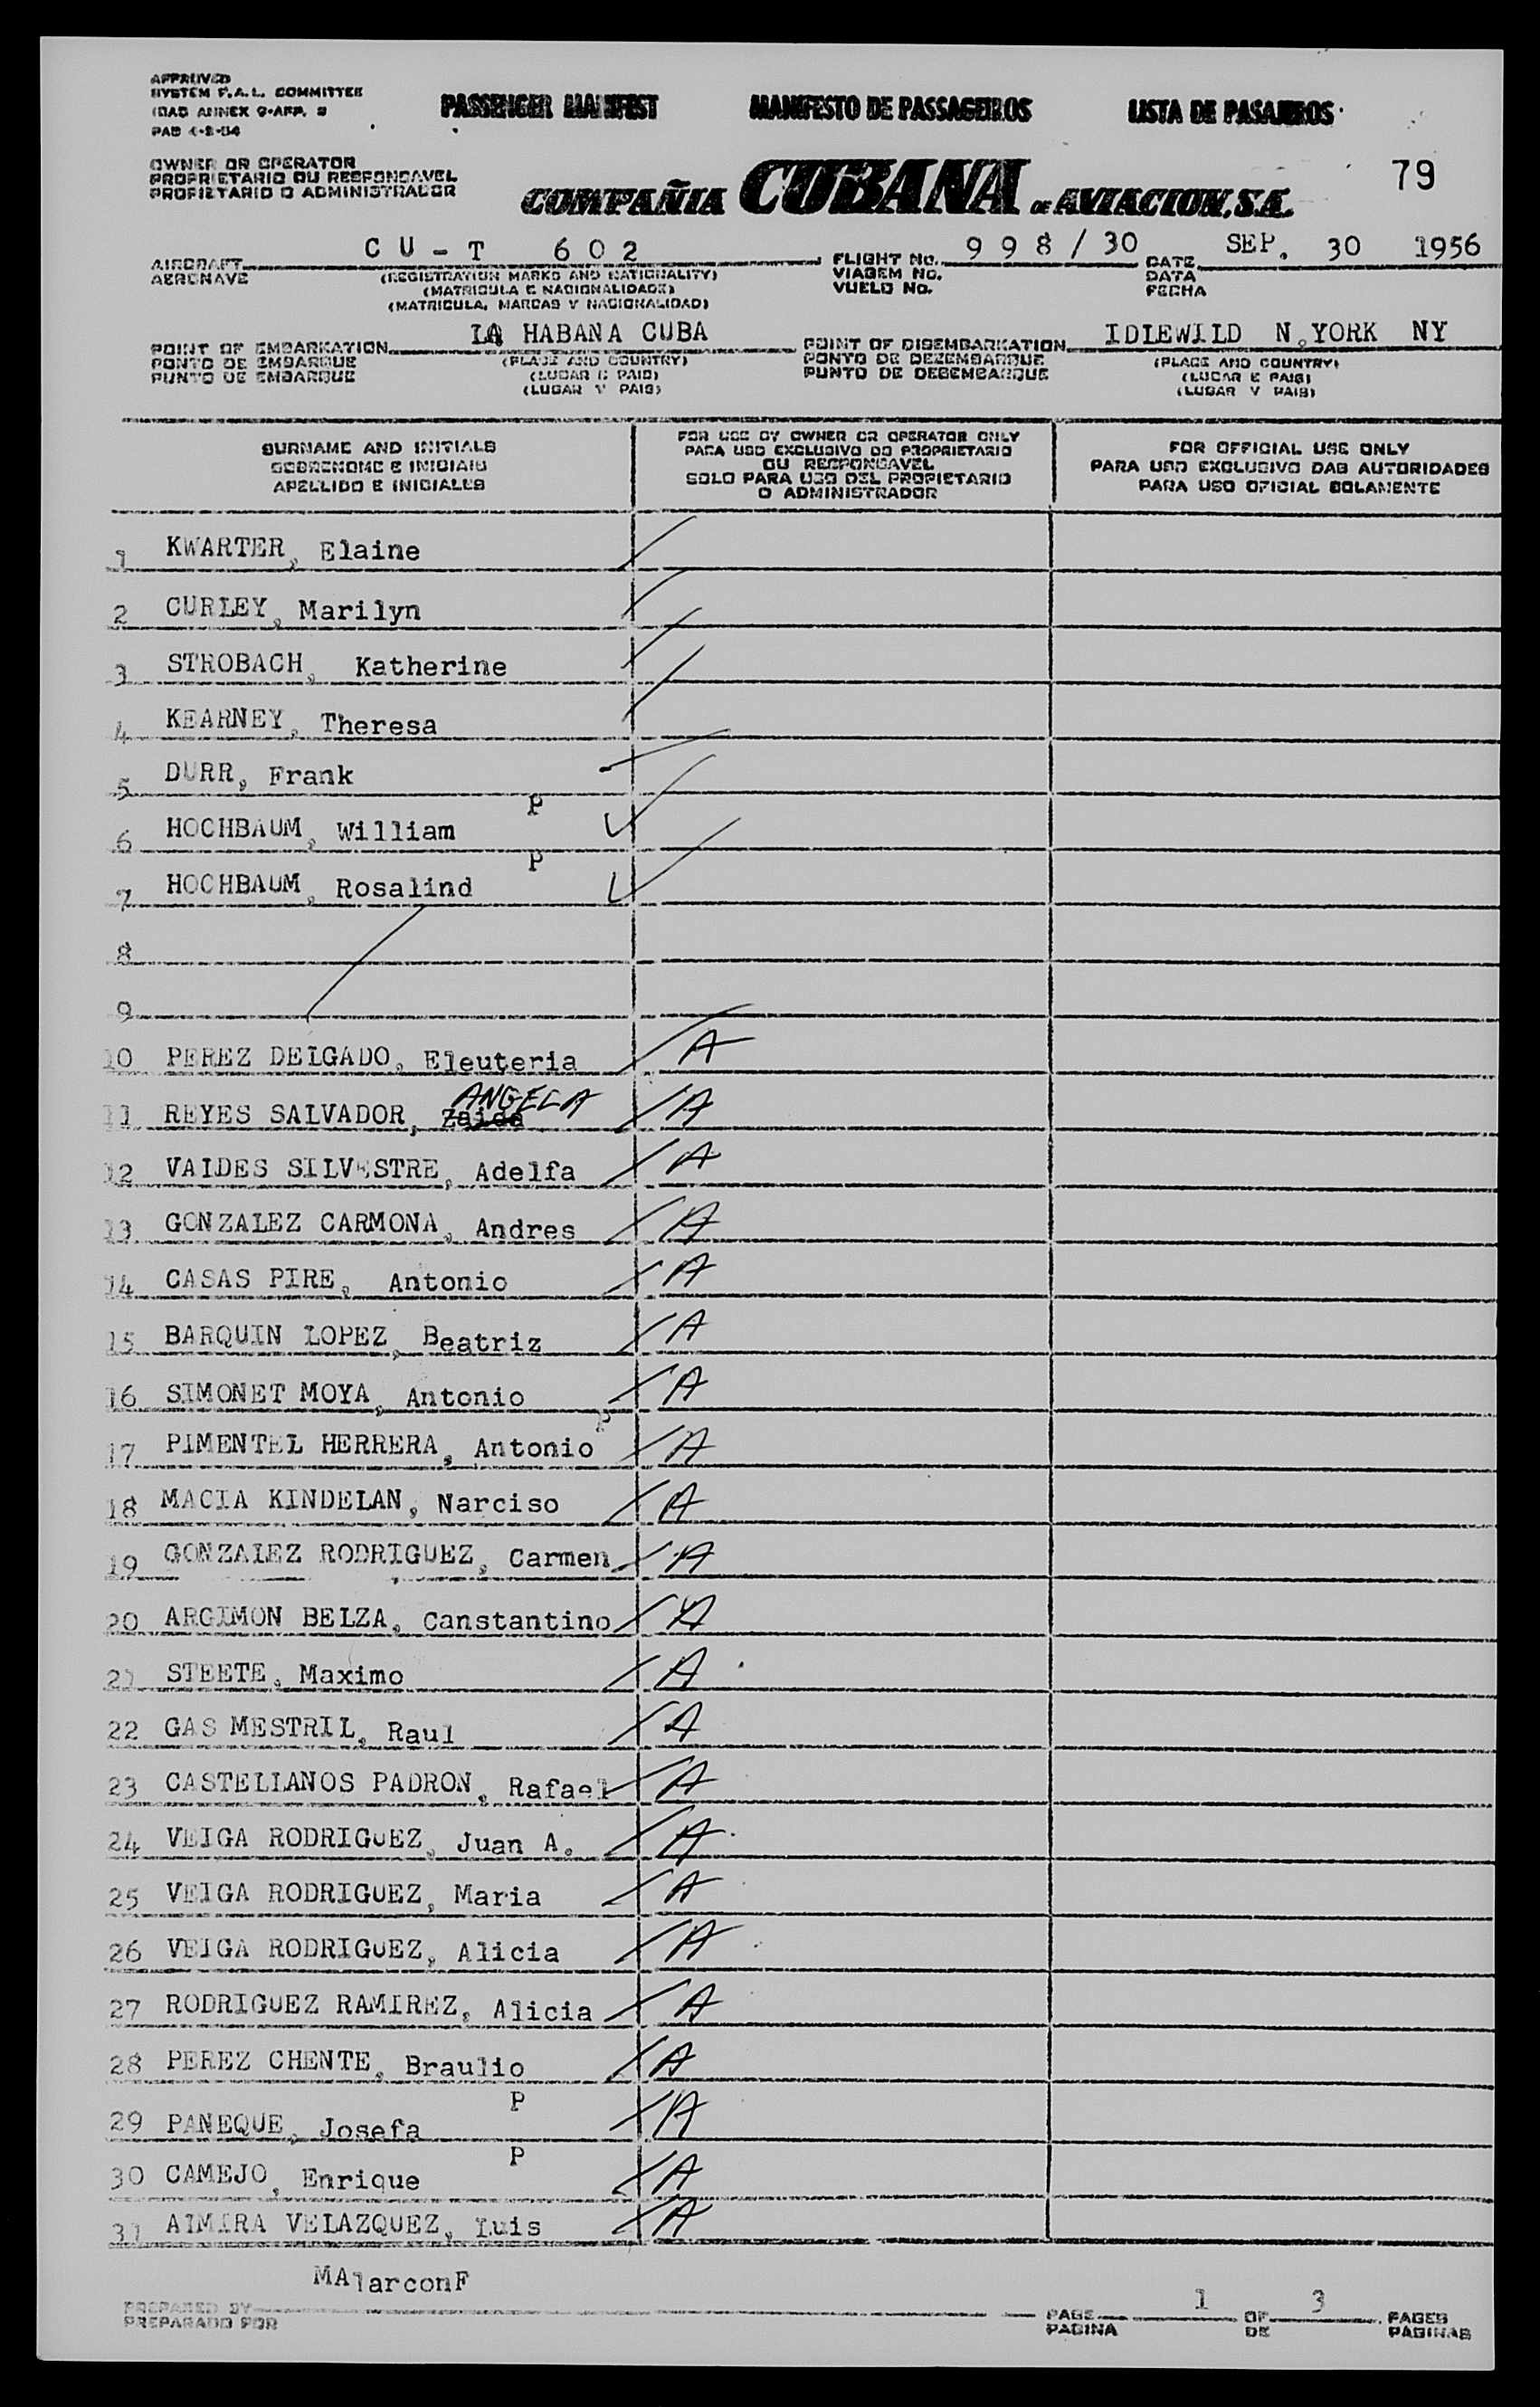 APPROVED
SYSTEM F.A.L. COMMITTEE
ICAO ANNEX 9-APP. 3
PAB 4-2-54
PASSENGER MANIFEST MANIFESTO DE PASSAGEIROS LISTA DE PASAJEROS
OWNER OR OPERATOR
PROPRIETARIO OU RESPONSAVEL
PROPIETARIO O ADMINISTRADOR
COMPAÑIA CUBANA DE AVIACION, S.A.
79
AIRCRAFT CU-T 602 FLIGHT No. 998/30 DATE SEP. 30 1956
AERONAVE (REGISTRATION MARKS AND NATIONALITY) VIAGEM No. DATA
(MATRICULA E NACIONALIDADE) VUELO No. FECHA
(MATRICULA, MARCAS Y NACIONALIDAD)
POINT OF EMBARKATION LA HABANA CUBA POINT OF DISEMBARKATION IDLEWILD N.YORK NY
PONTO DE EMBARQUE (PLACE AND COUNTRY) PONTO DE DEZEMBARQUE (PLACE AND COUNTRY)
PUNTO DE EMBARQUE (LUGAR E PAIS) PUNTO DE DESEMBARQUE (LUGAR E PAIS)
(LUGAR Y PAIS) (LUGAR Y PAIS)
SURNAME AND INITIALS
SOBRENOME E INICIAIS
APELLIDO E INICIALES
FOR USE BY OWNER OR OPERATOR ONLY
PARA USO EXCLUSIVO DO PROPRIETARIO
OU RESPONSAVEL
SOLO PARA USO DEL PROPIETARIO
O ADMINISTRADOR
FOR OFFICIAL USE ONLY
PARA USO EXCLUSIVO DAS AUTORIDADES
PARA USO OFICIAL SOLAMENTE
1 KWARTER, Elaine
2 CURLEY, Marilyn
3 STROBACH, Katherine
4 KEARNEY, Theresa
5 DURR, Frank
P
6 HOCHBAUM, William
P
7 HOCHBAUM, Rosalind
8
9
10 PEREZ DELGADO, Eleuteria A
ANGELA
11 REYES SALVADOR, Zaida A
12 VALDES SILVESTRE, Adelfa A
13 GONZALEZ CARMONA, Andres A
14 CASAS PIRE, Antonio A
15 BARQUIN LOPEZ, Beatriz A
16 SIMONET MOYA, Antonio A
P
17 PIMENTEL HERRERA, Antonio A
18 MACIA KINDELAN, Narciso A
19 GONZALEZ RODRIGUEZ, Carmen A
20 ARGIMON BELZA, Canstantino A
21 STEETE, Maximo A
22 GAS MESTRIL, Raul A
23 CASTELLANOS PADRON, Rafael A
24 VEIGA RODRIGUEZ, Juan A. A
25 VEIGA RODRIGUEZ, Maria A
26 VEIGA RODRIGUEZ, Alicia A
27 RODRIGUEZ RAMIREZ, Alicia A
28 PEREZ CHENTE, Braulio A
P
29 PANEQUE, Josefa A
P
30 CAMEJO, Enrique A
31 ALMIRA VELAZQUEZ, Luis A
MAlarconF
PREPARED BY
PREPARADO POR
PAGE 1 OF 3 PAGES
PAGINA DE PAGINAS